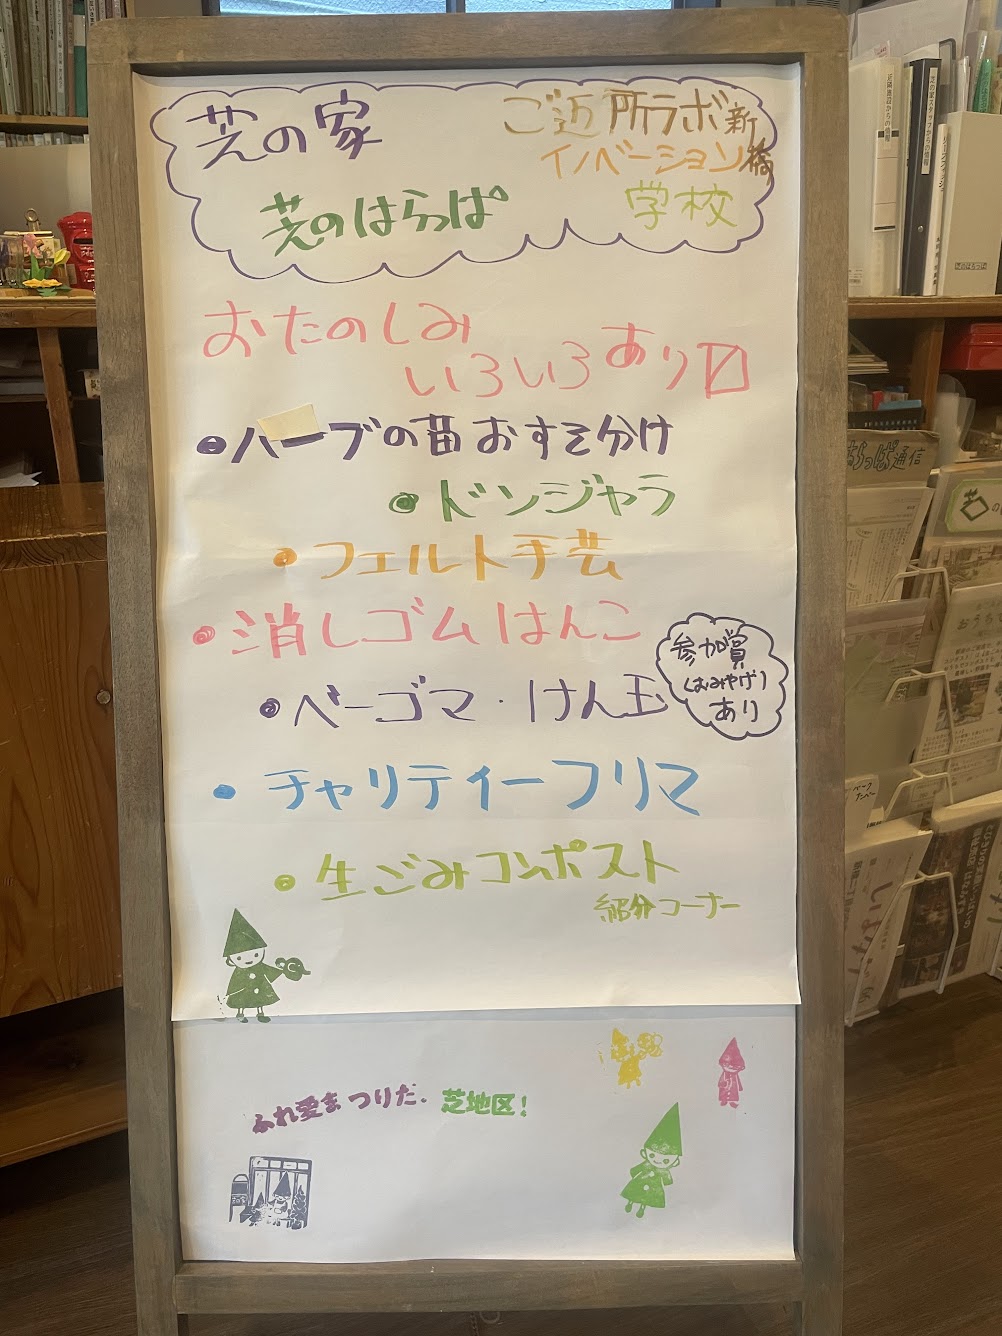 芝の家
ご近所ラボ新橋
イノベーション
学校
芝のはらっぱ
おたのしみ
いろいろあり〼
・ハーブの苗おすそ分け
・ドンジャラ
・フェルト手芸
・消しゴムはんこ
・ベーゴマ・けん玉
参加賞
(おみやげ)
あり
・チャリティーフリマ
・生ごみコンポスト
紹介コーナー
ふれ愛まつりだ、芝地区!
らっぱ通信